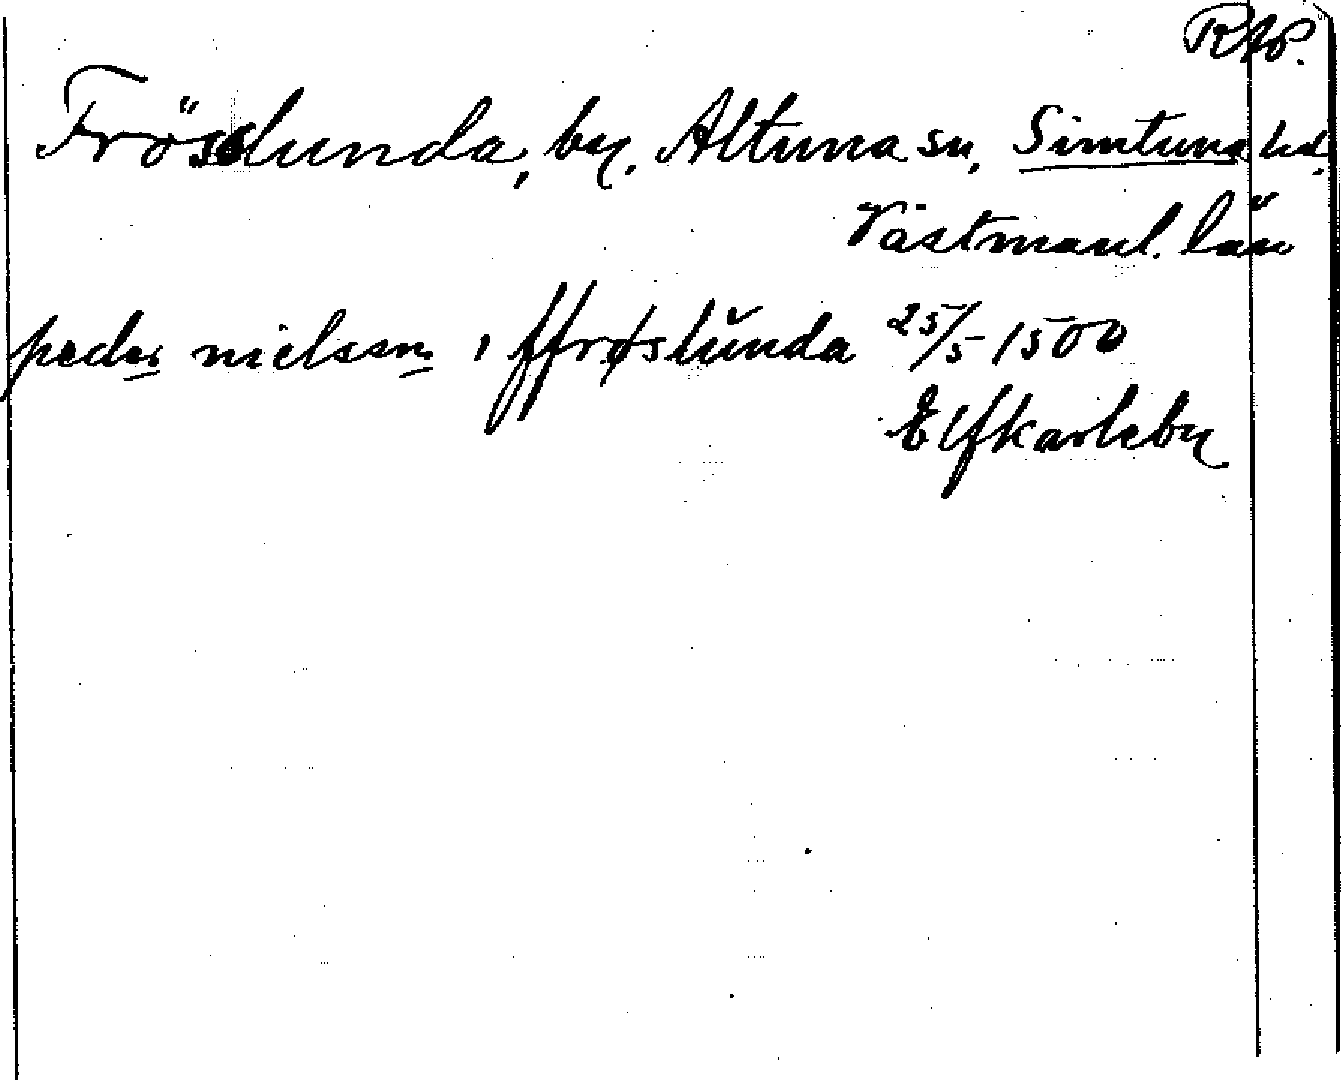 RAP.
Fröslunda, by, Altuna sn, Simtuna hd,
Västmanl. län
peder nielsen i ffrøslŭnda 25/5 1500
Elfkarleby